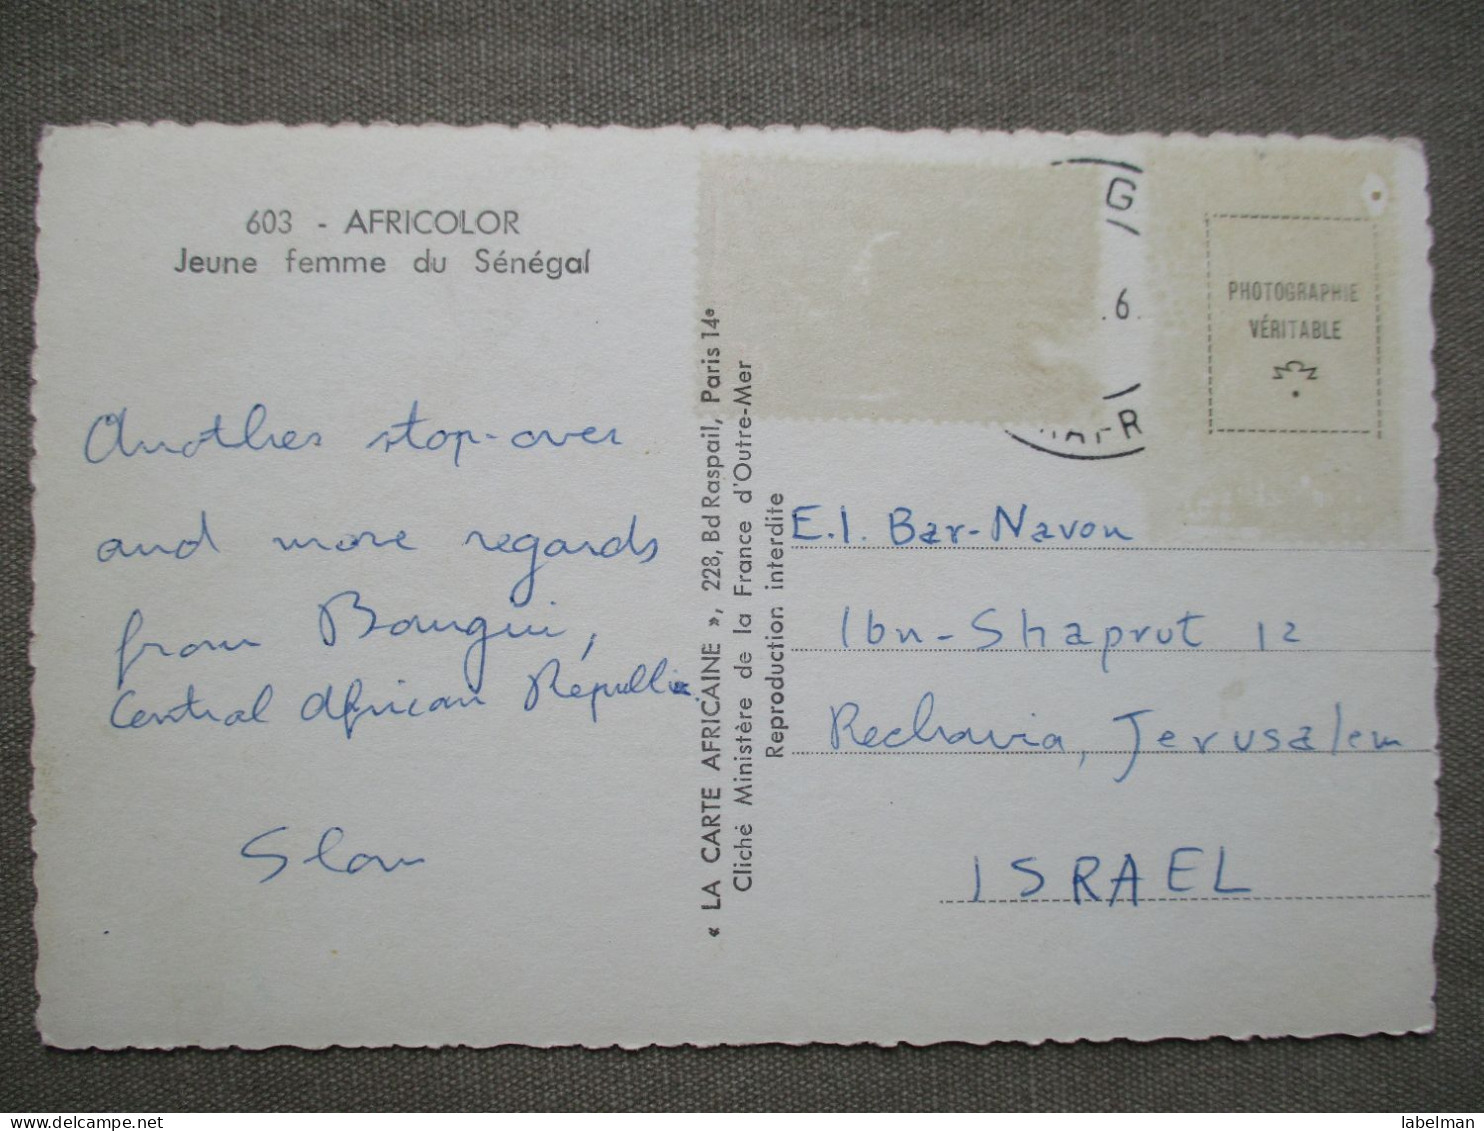 603 - AFRICOLOR
Jeune femme du Sénégal
Another stop-over
and more regards
from Bangui,
Central African Républic.
Slav
« LA CARTE AFRICAINE », 228, Bd Raspail, Paris 14e
Cliché Ministère de la France d'Outre-Mer
Reproduction interdite
G
.6.
AFR
PHOTOGRAPHIE
VÉRITABLE
E.I. Bar-Navon
Ibn-Shaprut 12
Rechavia, Jerusalem
ISRAEL
delcampe.net
labelman